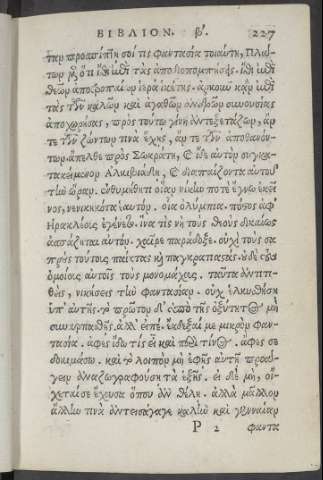 ΒΙΒΛΙΟΝ. β'. 227
ὅταν προσπίπτῃ σοί τις φαντασία τοιαύτη, Πλά-
των μὲν ὅτι ἴθι ἐπὶ τὰς ἀποδιοπομπήσεις. ἴθι ἐπὶ
θεῶν ἀποτροπαίων ἱερὰ ἱκέτης. ἀρκεῖ κἂν ἐπὶ
τὰς τῶν καλῶν καὶ ἀγαθῶν ἀνδρῶν συνουσίας
ἀποχωρήσας, πρὸς τούτῳ γένῃ ἀντεξετάζων, ἄν
τε τῶν ζώντων τινὰ ἔχῃς, ἄν τε τῶν ἀποθανόν-
των. ἄπελθε πρὸς Σωκράτη, καὶ ἴδε αὐτὸν συγκα-
τακείμενον Ἀλκιβιάδῃ, καὶ διαπαίζοντα αὐτοῦ
τὴν ὥραν. ἐνθυμήθητι οἵαν νίκην ποτὲ ἔγνω ἐκεῖ-
νος, νενικηκότα ἑαυτόν. οἷα ὀλύμπια. πόστος ἀφ'
Ἡρακλέους ἐγένετο. ἵνα τὶς νὴ τοὺς θεοὺς δικαίως
ἀσπάζηται αὐτόν. χαῖρε παράδοξε. οὐχὶ τοὺς σα-
προὺς τούτους πύκτας κỳ παγκρατιαστάς. οὐδὲ τοὺς
ὁμοίους αὐτοῖς τοὺς μονομάχους. ταῦτα ἀντιτι-
θεὶς, νικήσεις τὴν φαντασίαν. οὐχ ἑλκυσθήσῃ
ὑπ' αὐτῆς. τὸ πρῶτον δ' ὑπὸ τῆς ὀξύτητος μὴ
συναρπασθῇς. ἀλλ' εἰπέ. ἔκδεξαί με μικρὸν φαν-
τασία. ἄφες ἴδω τίς εἶ καὶ περὶ τίνος. ἄφες σε
δοκιμάσω. καὶ τὸ λοιπὸν μὴ ἐφῇς αὐτῇ προά-
γειν ἀναζωγραφούσῃ τὰ ἑξῆς. εἰ δὲ μὴ, οἴ-
χεταί σε ἔχουσα ὅπου ἂν θέλῃ. ἀλλὰ μᾶλλον
ἄλλην τινὰ ἀντεισάγαγε καλὴν καὶ γενναίαν
P 2 φαντα